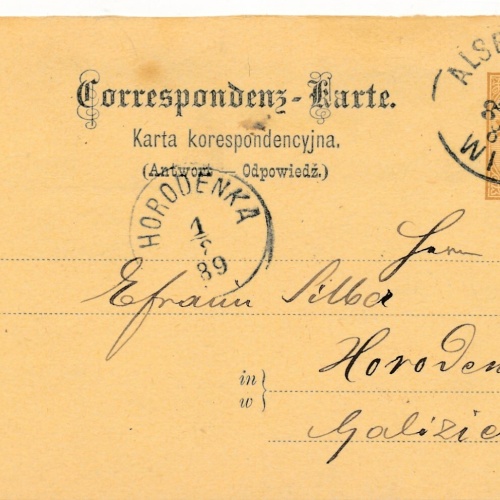 Correspondenz-Karte.
Karta korespondencyjna.
(Antwort — Odpowiedź.)
ALS
WI
HORODENKA
89
Herrn
Efraim Silba
in
w
Horoden
Galizie